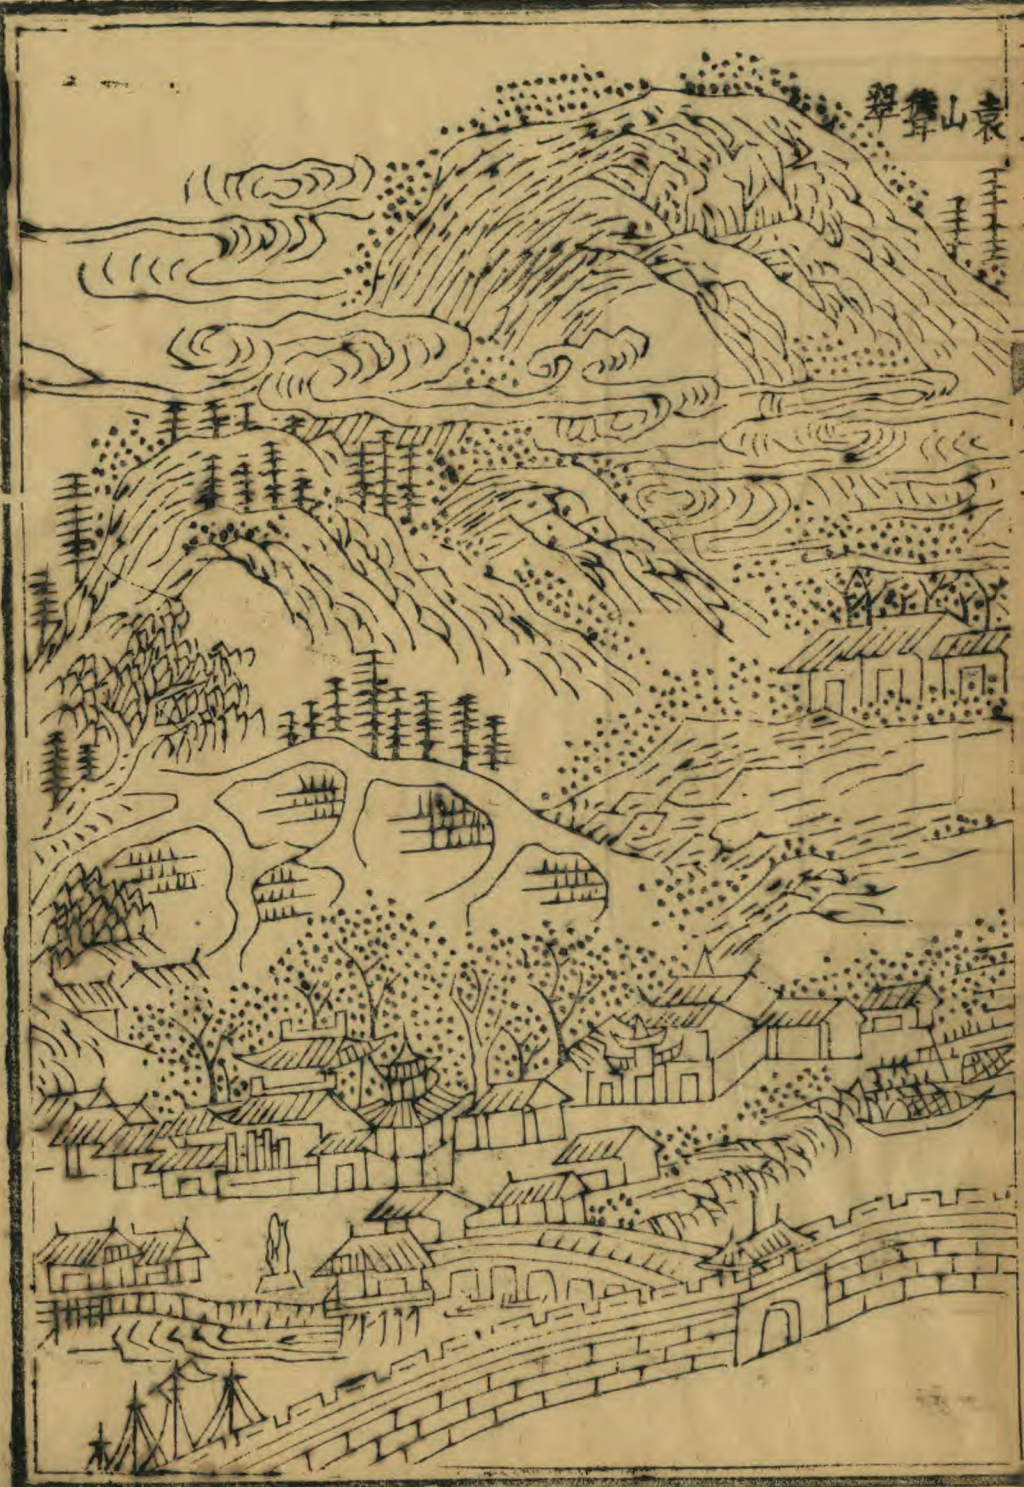 袁山聳翠